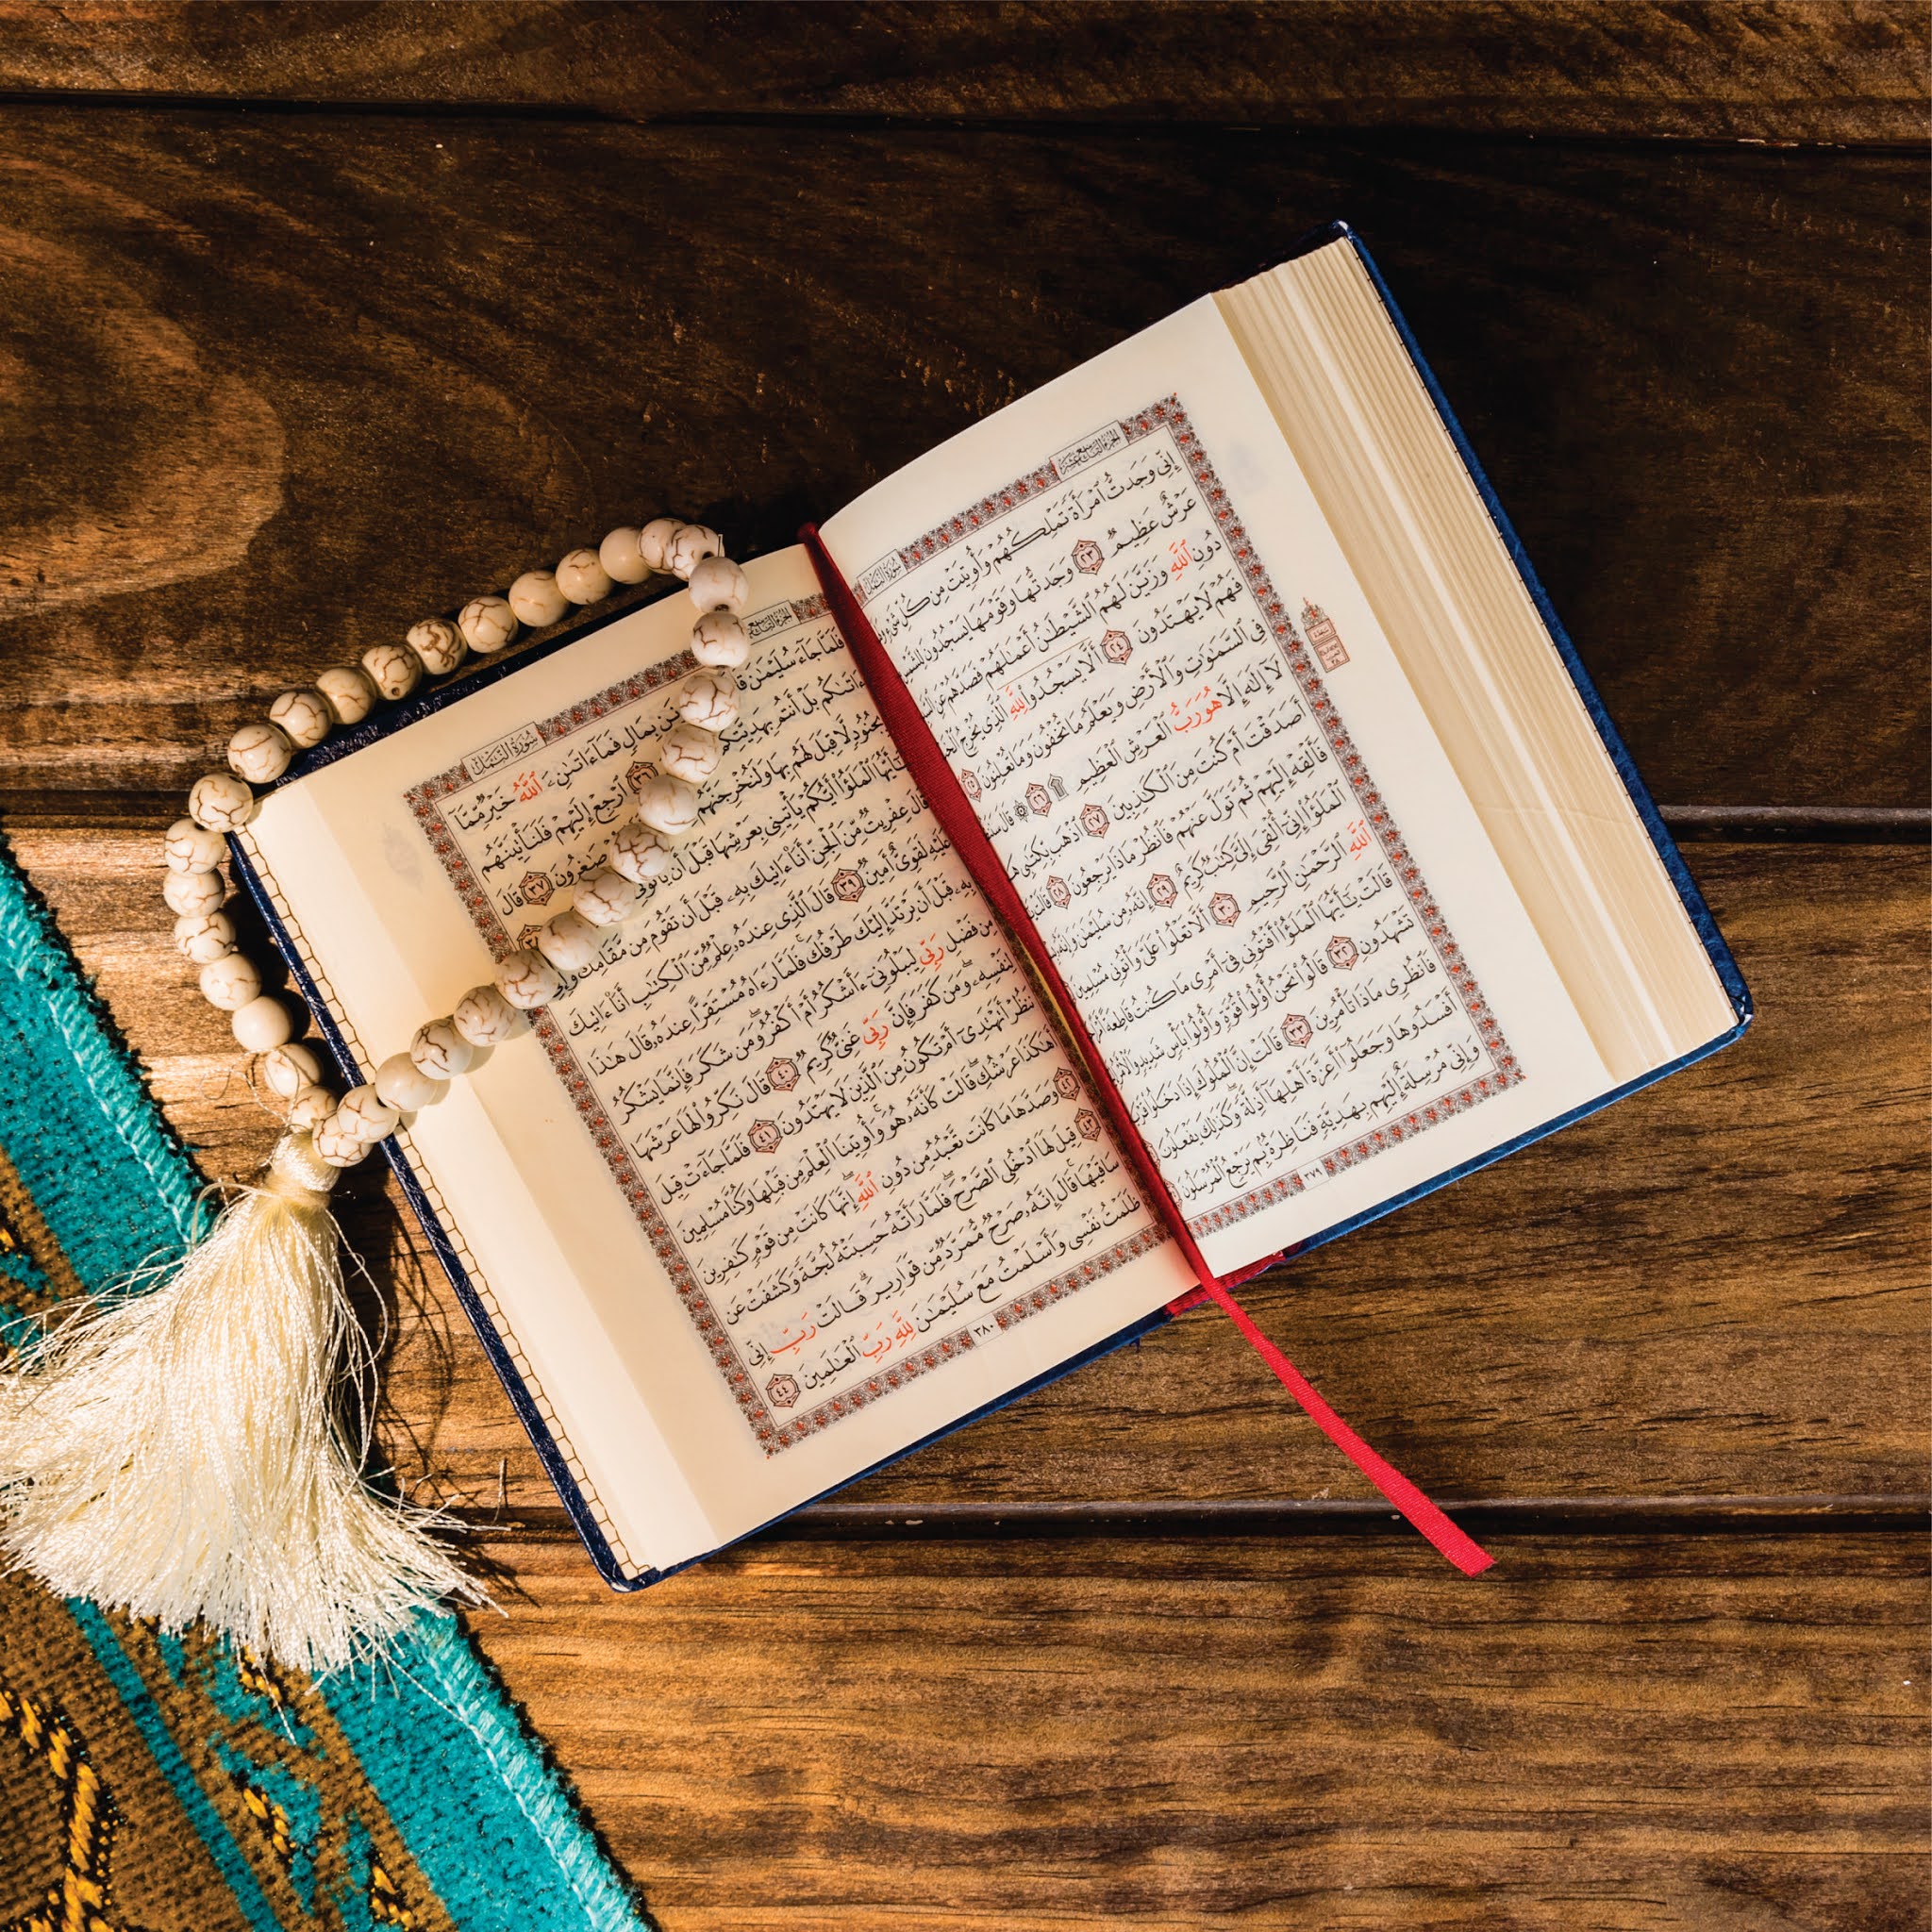 الجزء التاسع عشر
سورة النمل
إِنِّى وَجَدتُّ ٱمْرَأَةً تَمْلِكُهُمْ وَأُوتِيَتْ مِن كُلِّ شَىْءٍ
عَرْشٌ عَظِيمٌ ٢٣ وَجَدتُّهَا وَقَوْمَهَا يَسْجُدُونَ لِلشَّمْسِ
دُونِ ٱللَّهِ وَزَيَّنَ لَهُمُ ٱلشَّيْطَٰنُ أَعْمَٰلَهُمْ فَصَدَّهُمْ عَنِ
فَهُمْ لَا يَهْتَدُونَ ٢٤ أَلَّا يَسْجُدُوا۟ لِلَّهِ ٱلَّذِى يُخْرِجُ
فِى ٱلسَّمَٰوَٰتِ وَٱلْأَرْضِ وَيَعْلَمُ مَا تُخْفُونَ وَمَا تُعْلِنُونَ ٢٥
لَآ إِلَٰهَ إِلَّا هُوَ رَبُّ ٱلْعَرْشِ ٱلْعَظِيمِ ۩ ٢٦ ۞ قَالَ
أَصَدَقْتَ أَمْ كُنتَ مِنَ ٱلْكَٰذِبِينَ ٢٧ ٱذْهَب بِّكِتَٰبِى
فَأَلْقِهْ إِلَيْهِمْ ثُمَّ تَوَلَّ عَنْهُمْ فَٱنظُرْ مَاذَا يَرْجِعُونَ ٢٨ قَالَتْ
ٱلْمَلَؤُا۟ إِنِّىٓ أُلْقِىَ إِلَىَّ كِتَٰبٌ كَرِيمٌ ٢٩ إِنَّهُۥ مِن سُلَيْمَٰنَ وَإِنَّهُۥ
ٱللَّهِ ٱلرَّحْمَٰنِ ٱلرَّحِيمِ ٣٠ أَلَّا تَعْلُوا۟ عَلَىَّ وَأْتُونِى مُسْلِمِينَ
قَالَتْ يَٰٓأَيُّهَا ٱلْمَلَؤُا۟ أَفْتُونِى فِىٓ أَمْرِى مَا كُنتُ قَاطِعَةً أَمْرًا
تَشْهَدُونِ ٣٢ قَالُوا۟ نَحْنُ أُو۟لُوا۟ قُوَّةٍ وَأُو۟لُوا۟ بَأْسٍ شَدِيدٍ وَٱلْأَمْرُ
فَٱنظُرِى مَاذَا تَأْمُرِينَ ٣٣ قَالَتْ إِنَّ ٱلْمُلُوكَ إِذَا دَخَلُوا۟ قَرْيَةً
أَفْسَدُوهَا وَجَعَلُوٓا۟ أَعِزَّةَ أَهْلِهَآ أَذِلَّةً وَكَذَٰلِكَ يَفْعَلُونَ
وَإِنِّى مُرْسِلَةٌ إِلَيْهِم بِهَدِيَّةٍ فَنَاظِرَةٌۢ بِمَ يَرْجِعُ ٱلْمُرْسَلُونَ
٣٧٩
الجزء التاسع عشر
سورة النمل
فَلَمَّا جَآءَ سُلَيْمَٰنَ قَالَ بِمَالٍ فَمَآ ءَاتَىٰنِۦَ ٱللَّهُ خَيْرٌ مِّمَّآ
ءَاتَىٰكُم بَلْ أَنتُم بِهَدِيَّتِكُمْ ٣٦ ٱرْجِعْ إِلَيْهِمْ فَلَنَأْتِيَنَّهُم
بِجُنُودٍ لَّا قِبَلَ لَهُم بِهَا وَلَنُخْرِجَنَّهُم صَٰغِرُونَ ٣٧ قَالَ
يَٰٓأَيُّهَا ٱلْمَلَؤُا۟ أَيُّكُمْ يَأْتِينِى بِعَرْشِهَا قَبْلَ أَن يَأْتُونِى
قَالَ عِفْرِيتٌ مِّنَ ٱلْجِنِّ أَنَا۠ ءَاتِيكَ بِهِۦ قَبْلَ أَن تَقُومَ مِن مَّقَامِكَ وَإِنِّى
عَلَيْهِ لَقَوِىٌّ أَمِينٌ ٣٩ قَالَ ٱلَّذِى عِندَهُۥ عِلْمٌ مِّنَ ٱلْكِتَٰبِ أَنَا۠ ءَاتِيكَ
بِهِۦ قَبْلَ أَن يَرْتَدَّ إِلَيْكَ طَرْفُكَ فَلَمَّا رَءَاهُ مُسْتَقِرًّا عِندَهُۥ قَالَ هَٰذَا
مِن فَضْلِ رَبِّى لِيَبْلُوَنِىٓ ءَأَشْكُرُ أَمْ أَكْفُرُ وَمَن شَكَرَ فَإِنَّمَا يَشْكُرُ
لِنَفْسِهِۦ وَمَن كَفَرَ فَإِنَّ رَبِّى غَنِىٌّ كَرِيمٌ ٤٠ قَالَ نَكِّرُوا۟ لَهَا عَرْشَهَا
نَنظُرْ أَتَهْتَدِىٓ أَمْ تَكُونُ مِنَ ٱلَّذِينَ لَا يَهْتَدُونَ ٤١ فَلَمَّا جَآءَتْ قِيلَ
أَهَٰكَذَا عَرْشُكِ قَالَتْ كَأَنَّهُۥ هُوَ وَأُوتِينَا ٱلْعِلْمَ مِن قَبْلِهَا وَكُنَّا مُسْلِمِينَ
٤٢ وَصَدَّهَا مَا كَانَت تَّعْبُدُ مِن دُونِ ٱللَّهِ إِنَّهَا كَانَتْ مِن قَوْمٍ كَٰفِرِينَ
٤٣ قِيلَ لَهَا ٱدْخُلِى ٱلصَّرْحَ فَلَمَّا رَأَتْهُ حَسِبَتْهُ لُجَّةً وَكَشَفَتْ عَن
سَاقَيْهَا قَالَ إِنَّهُۥ صَرْحٌ مُّمَرَّدٌ مِّن قَوَارِيرَ قَالَتْ رَبِّ إِنِّى
ظَلَمْتُ نَفْسِى وَأَسْلَمْتُ مَعَ سُلَيْمَٰنَ لِلَّهِ رَبِّ ٱلْعَٰلَمِينَ ٤٤
٣٨٠